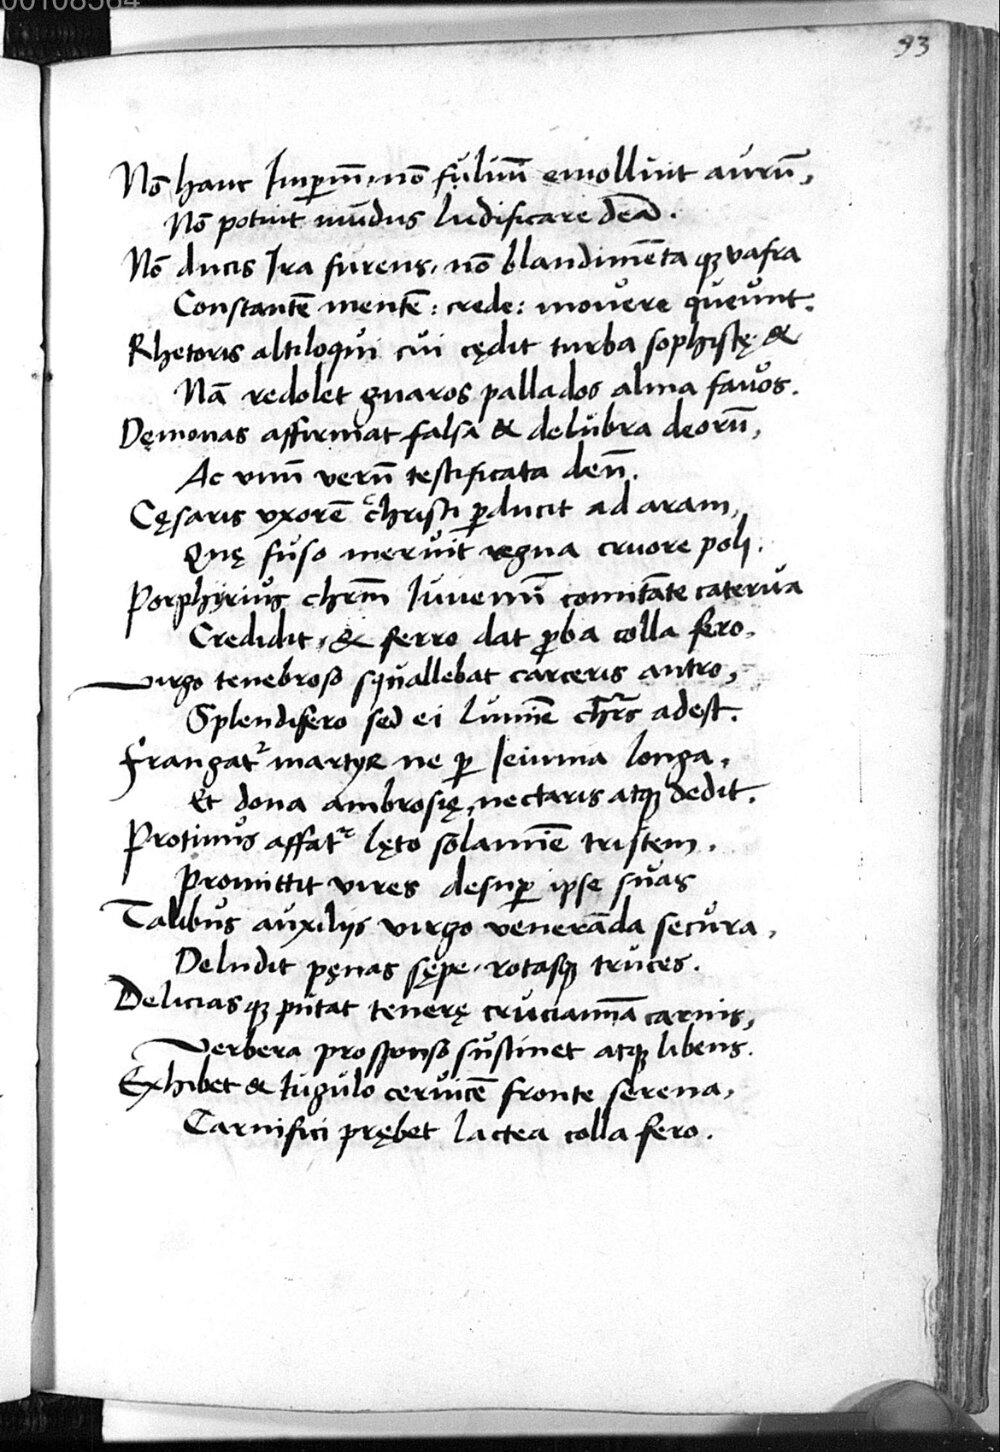 00108564
93
Nō hanc Imꝑiū, nō fuluū emolliuit aurū,
Nō potuit mūdus ludificare deā.
Nō ducis Ira furens, nō blandimēta qꝫ vafra
Constantē mentē: crede: mouere queunt.
Rhetoris altiloqui cui cędit turba sophistę &
Nā redolet gnaros pallados alma fauos.
Dęmonas affirmat falsa & delubra deorū,
Ac vnū verū testificata deū.
Cęsaris vxorē christi ꝑducit ad aram,
Quę fuso meruit regna cruore poli.
Porphyrius chrm̄ Iuuenū comitāte caterua
Credidit, & ferro dat ꝓba colla fero.
Virgo tenebroso squallebat carceris antro,
Splendifero sed ei lumīe chrs̄ adest.
Frangatᷣ martyr ne ꝑ Ieiunia longa,
Et dona ambrosię, nectaris atqꝫ dedit.
Protinus affatᷣ lęto solamīe tristem.
Promittit vires desuꝑ ipse suas
Talibus auxilijs virgo venerāda secura,
Deludit pęnas sępe, rotasqꝫ truces.
Delicias qꝫ putat tenerę cruciamīa carnis,
Verbera pro sponso sustinet atqꝫ libens.
Exhibet & iugulo ceruicē fronte serena,
Carnifici prębet lactea colla fero.